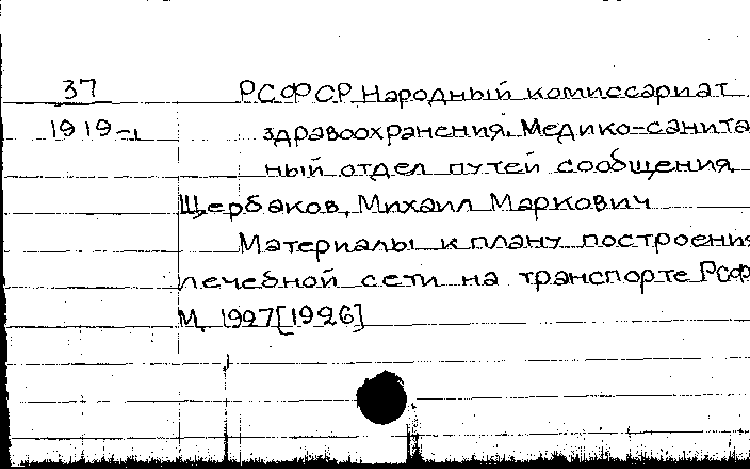 37 РСФСР. Народный комиссариат
1919-1 здравоохранения. Медико-санита
ный отдел путей сообщения.
Щербаков, Михаил Маркович
Материалы к плану построения
лечебной сети на транспорте РСФ
М. 1927[1926]